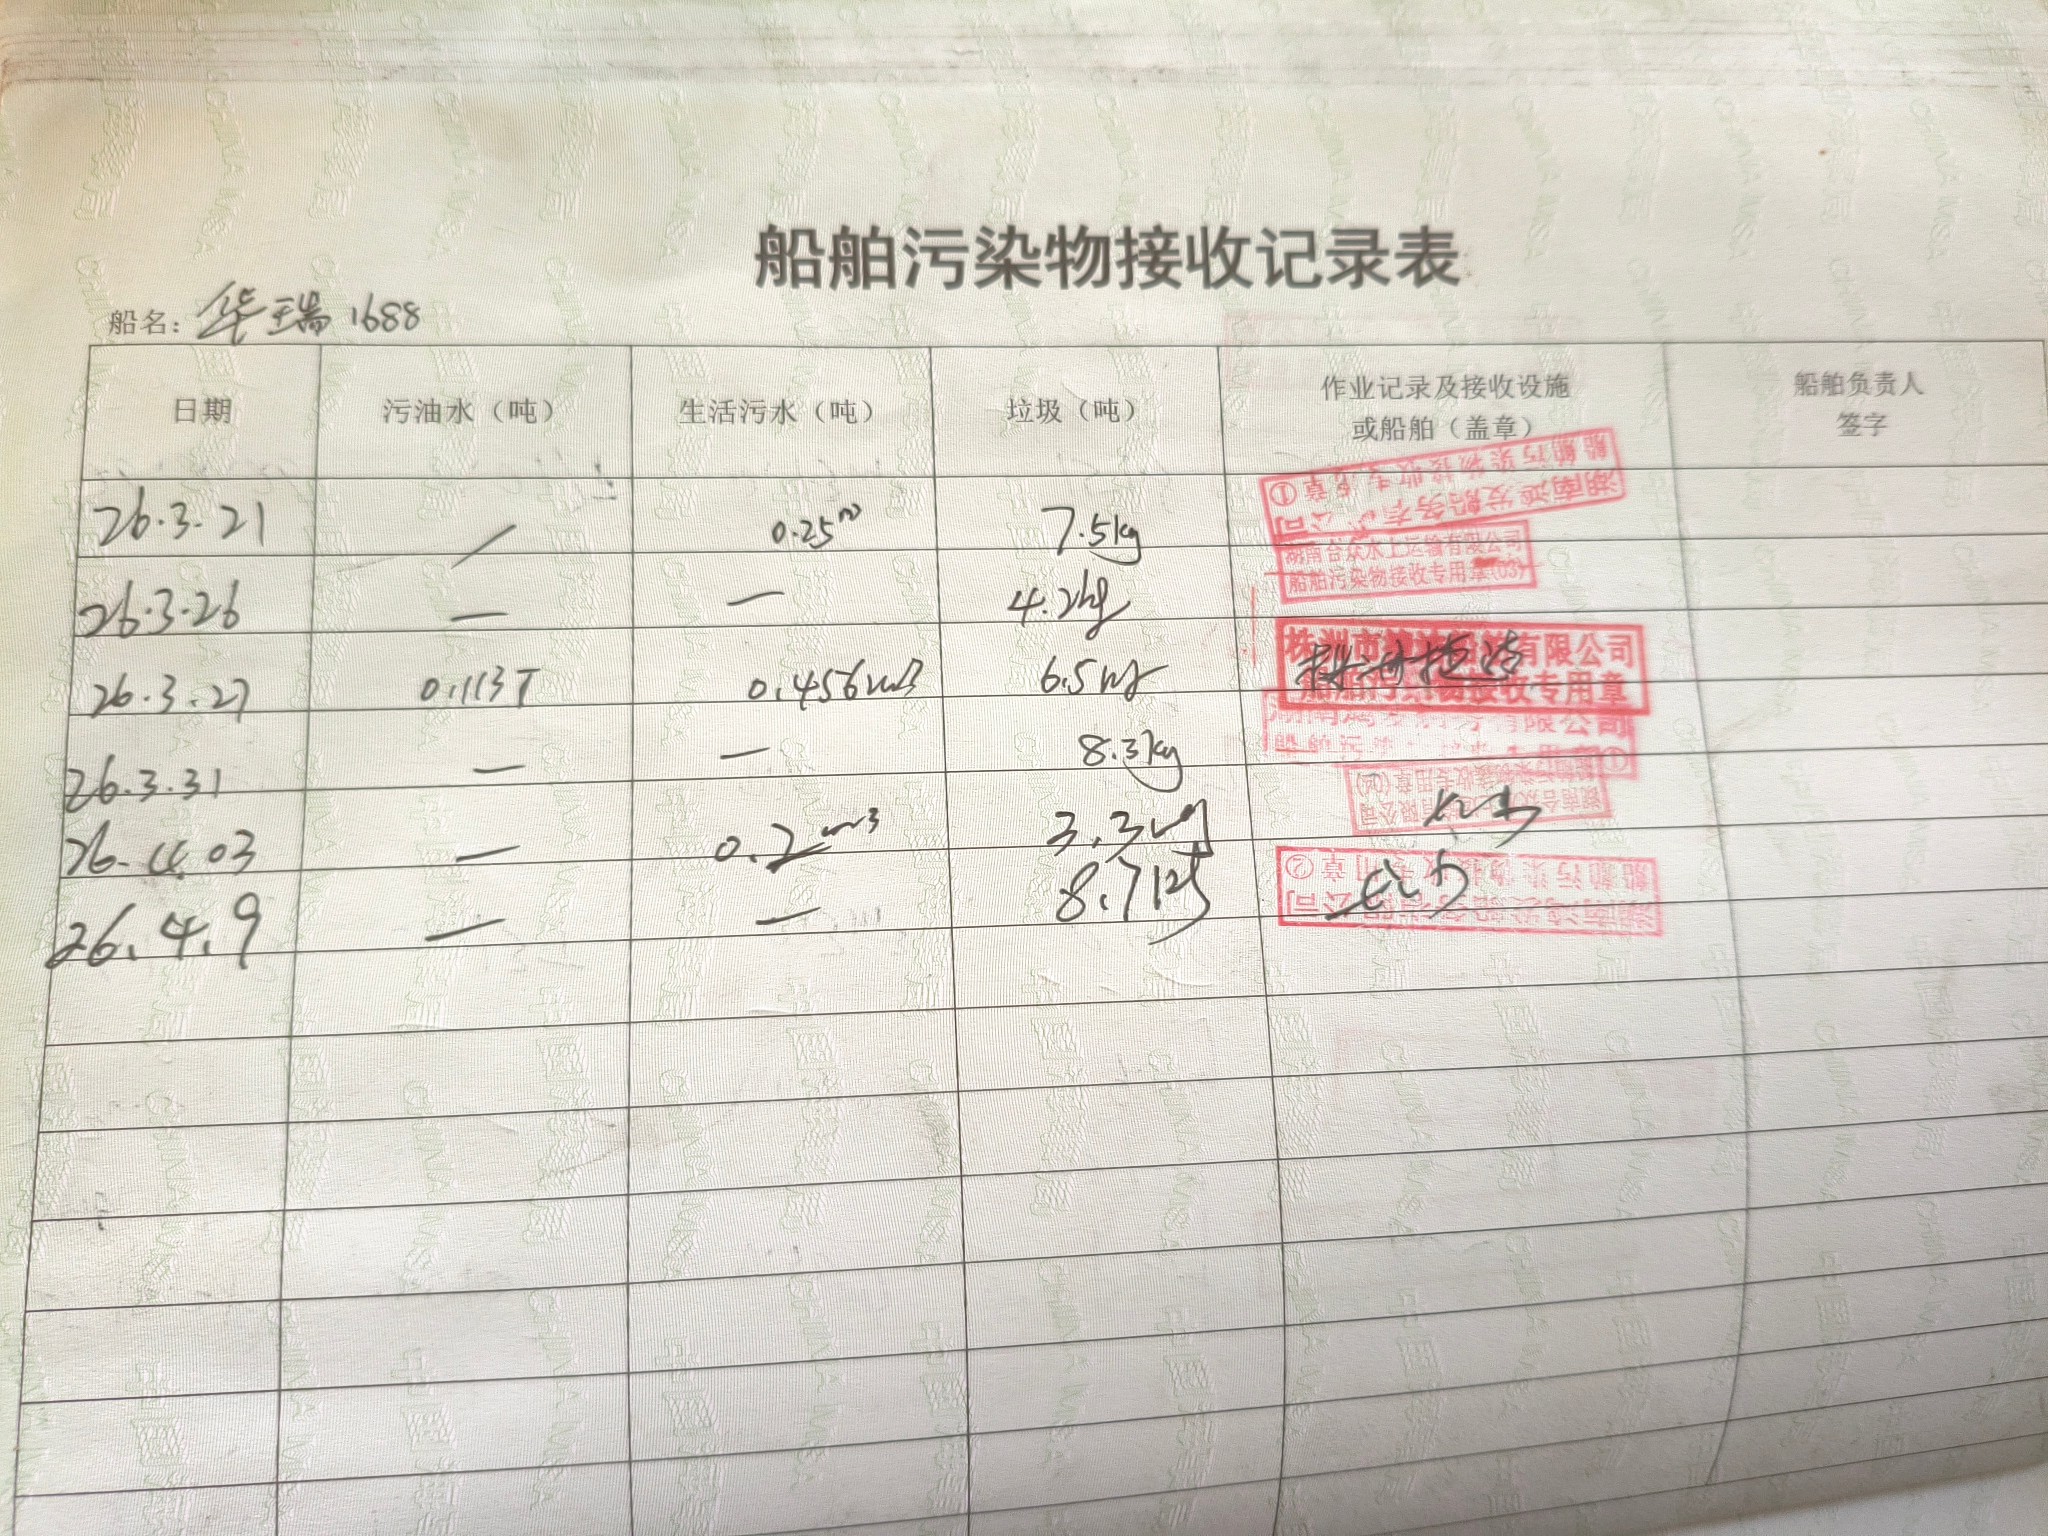 船舶污染物接收记录表
船名：华瑞1688
日期 污油水（吨） 生活污水（吨） 垃圾（吨） 作业记录及接收设施或船舶（盖章） 船舶负责人签字
26.3.21 / 0.25 7.5kg
船舶污染物接收专用章①
湖南鸿发船务有限公司
26.3.26 — — 4.2kg
湖南合众水上运输有限公司
船舶污染物接收专用章(03)
26.3.27 0.113T 0.456m3 6.5kg
株洲市 有限公司
船舶污染物接收专用章
26.3.31 — — 8.3kg
有限公司
船舶污
26.4.03 — 0.2m3 3.3kg
26.4.9 — — 8.7kg
船舶污染物接收专用章②